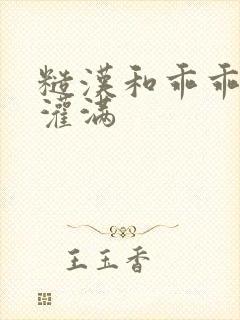 糙漢和乖乖
灌满
王玉香